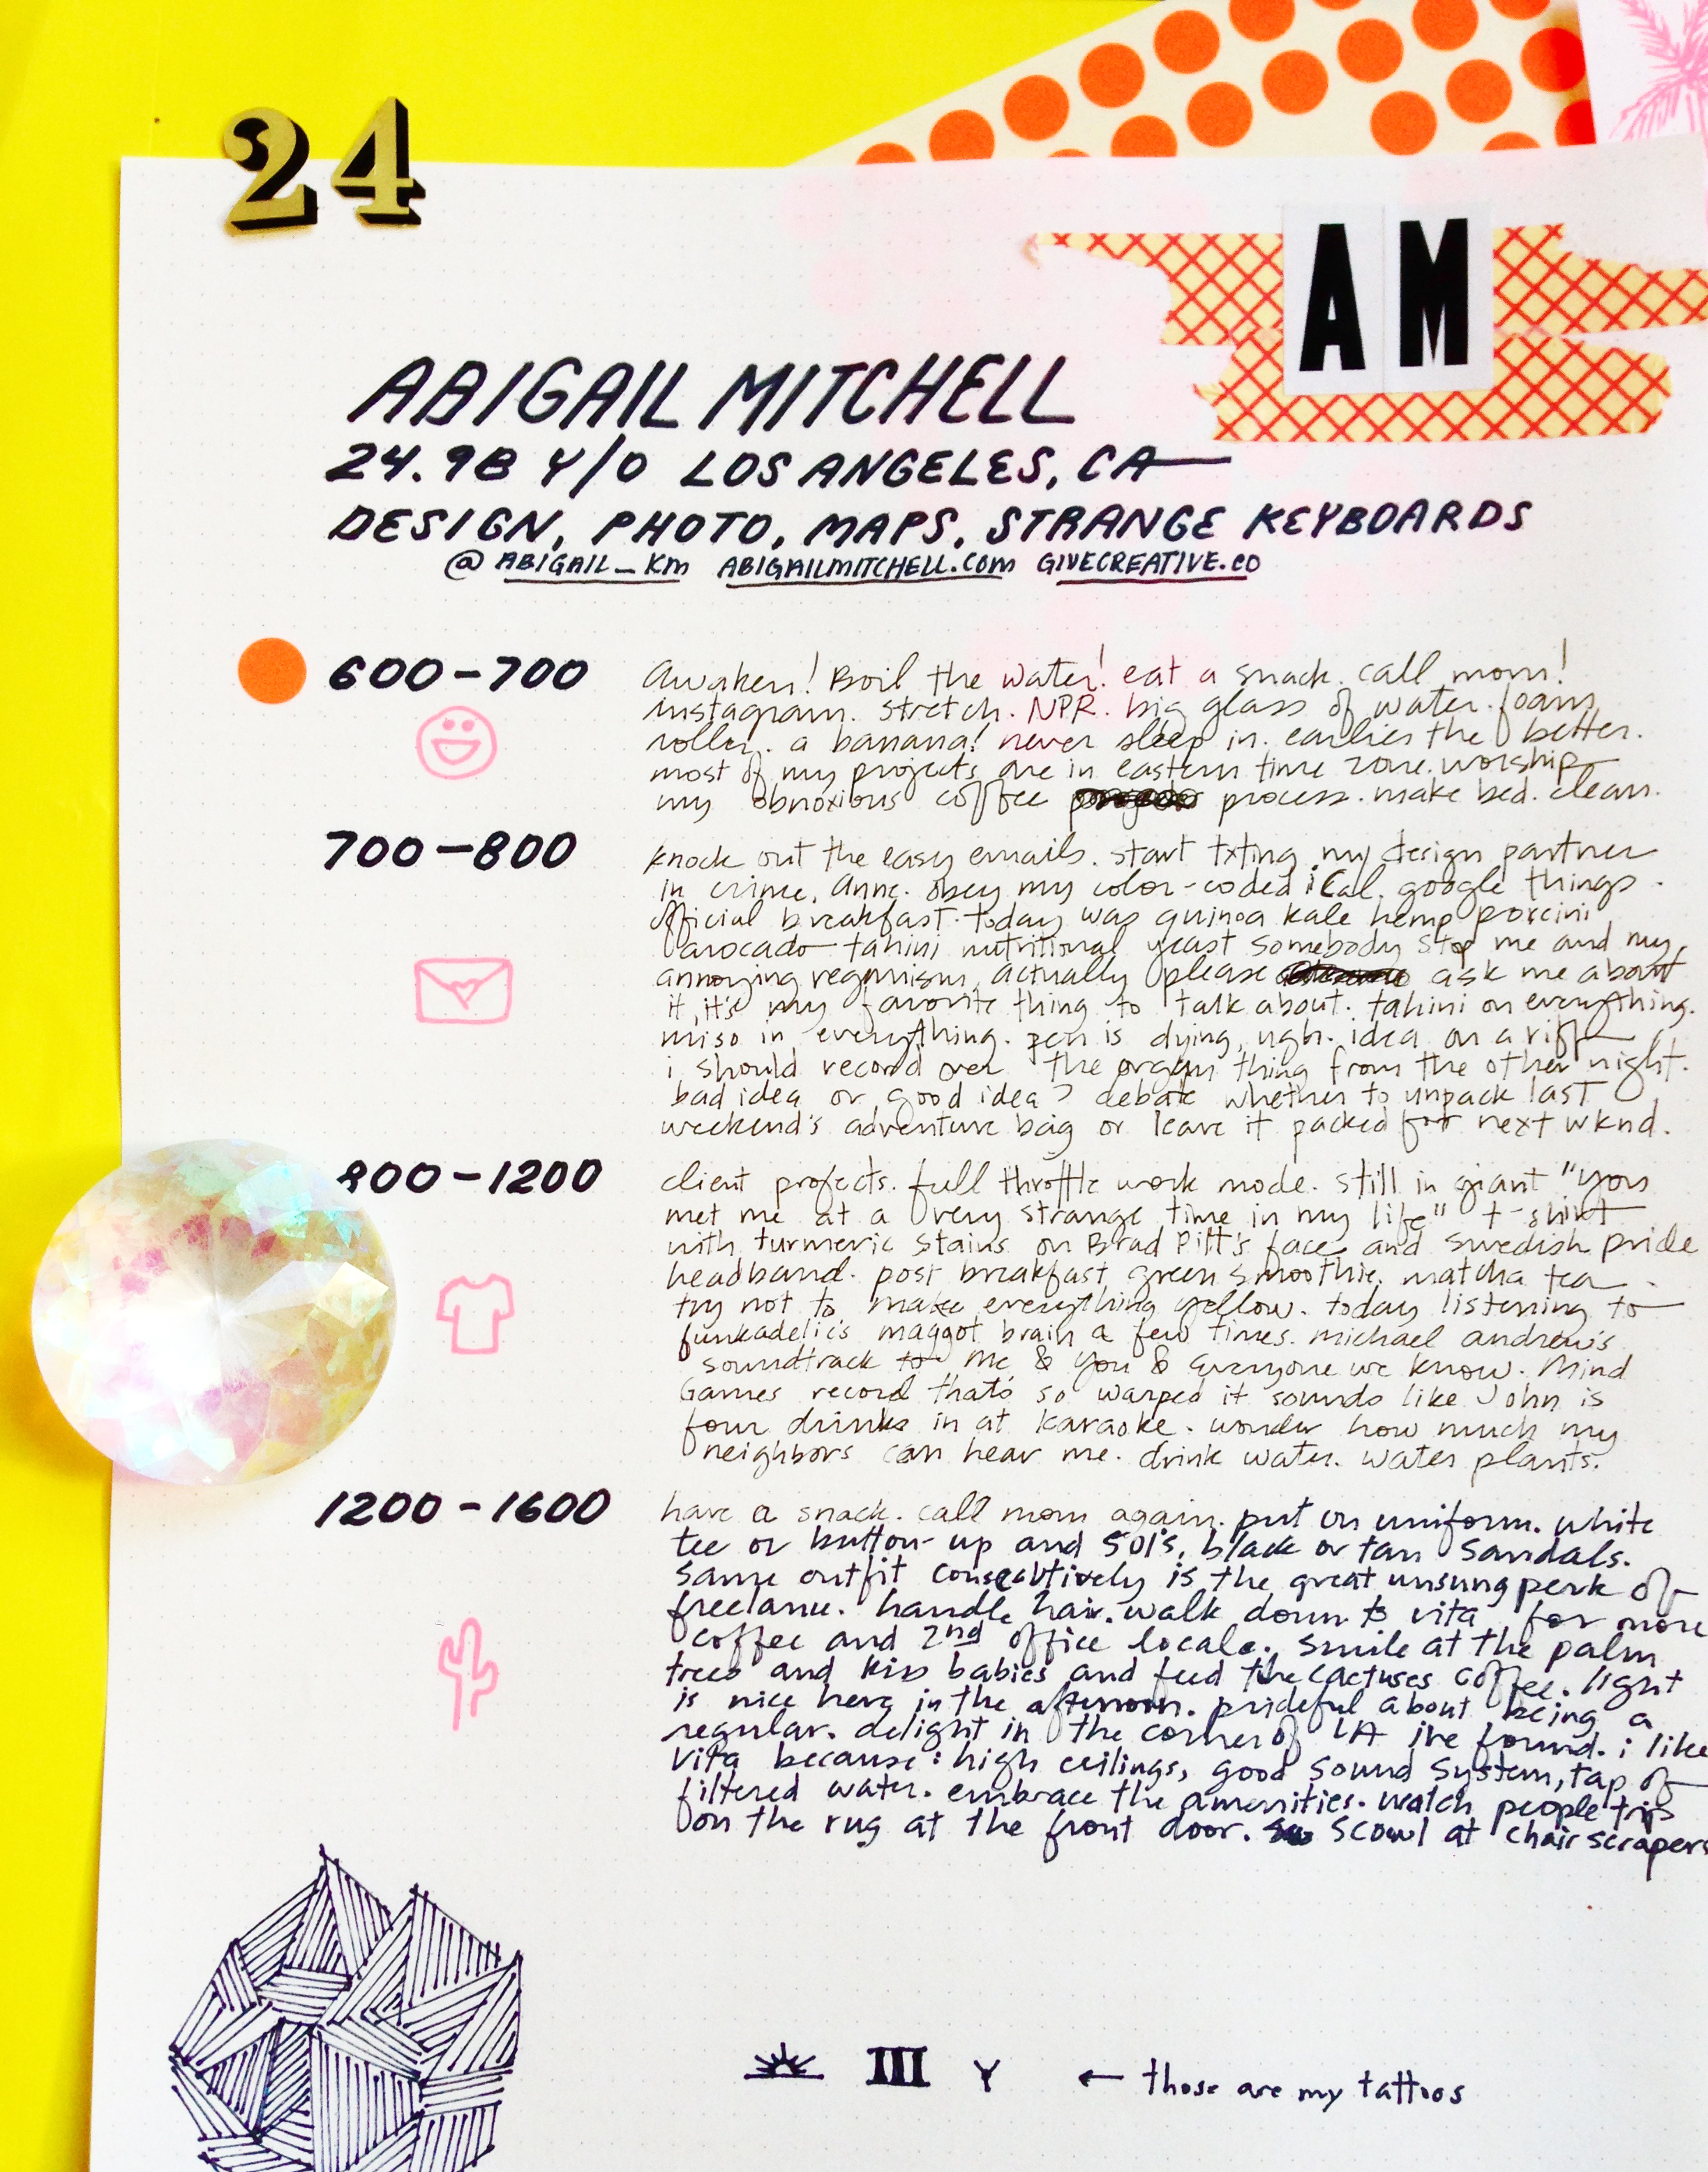 24
AM
ABIGAIL MITCHELL
24.98 Y/O LOS ANGELES, CA
DESIGN, PHOTO, MAPS, STRANGE KEYBOARDS
@ABIGAIL_KM ABIGAILMITCHELL.COM GIVECREATIVE.CO
600-700
awaken! Boil the water! eat a snack. call mom!
instagram. stretch. NPR. big glass of water. foam
roller. a banana! never sleep in. earlier the better.
most of my projects are in eastern time zone. worship
my obnoxious coffee process. make bed. clean.
700-800
knock out the easy emails. start txting my design partner
in crime, Anne. obey my color-coded iCal. google things.
official breakfast. today was quinoa kale hemp porcini
avocado tahini nutritional yeast somebody stop me and my
annoying veganism, actually please ask me about
it, it's my favorite thing to talk about. tahini on everything.
miso in everything. pen is dying, ugh. idea on a riff
i should record over the organ thing from the other night.
bad idea or good idea? debate whether to unpack last
weekend's adventure bag or leave it packed for next wknd.
800-1200
client projects. full throttle work mode. still in giant "you
met me at a very strange time in my life" t-shirt
with turmeric stains on Brad Pitt's face and swedish pride
headband. post breakfast green smoothie, matcha tea.
try not to make everything yellow. today listening to
funkadelic's maggot brain a few times. michael andrew's
soundtrack to me & you & everyone we know. Mind
Games record that's so warped it sounds like John is
four drinks in at karaoke. wonder how much my
neighbors can hear me. drink water. water plants.
1200-1600
have a snack. call mom again. put on uniform. white
tee or button-up and 501's, black or tan sandals.
Same outfit consecutively is the great unsung perk of
freelance. handle hair. walk down to vita for more
coffee and 2nd office locale. smile at the palm
trees and kiss babies and feed the cactuses coffee. light
is nice here in the afternoon. prideful about being a
regular. delight in the corner of LA ive found. i like
Vita because: high ceilings, good sound system, tap of
filtered water. embrace the amenities. watch people trip
on the rug at the front door. scowl at chair scrapers
III Y ← those are my tattoos